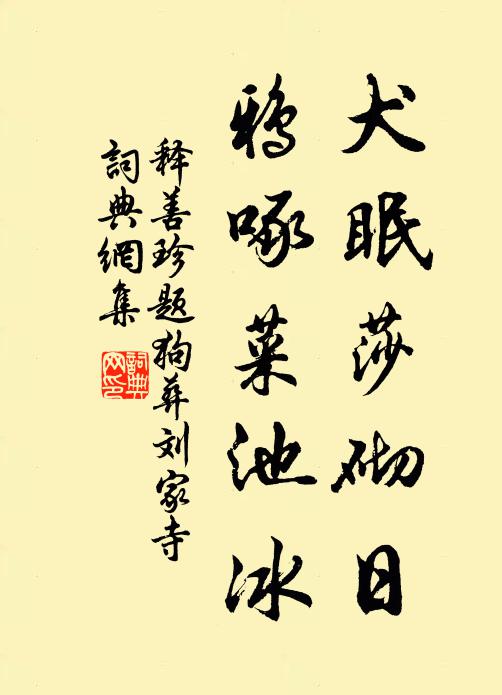 犬眠莎砌日
鸦啄菜池冰
释善珍题狗葬刘家寺
詞典網集
詞典网印